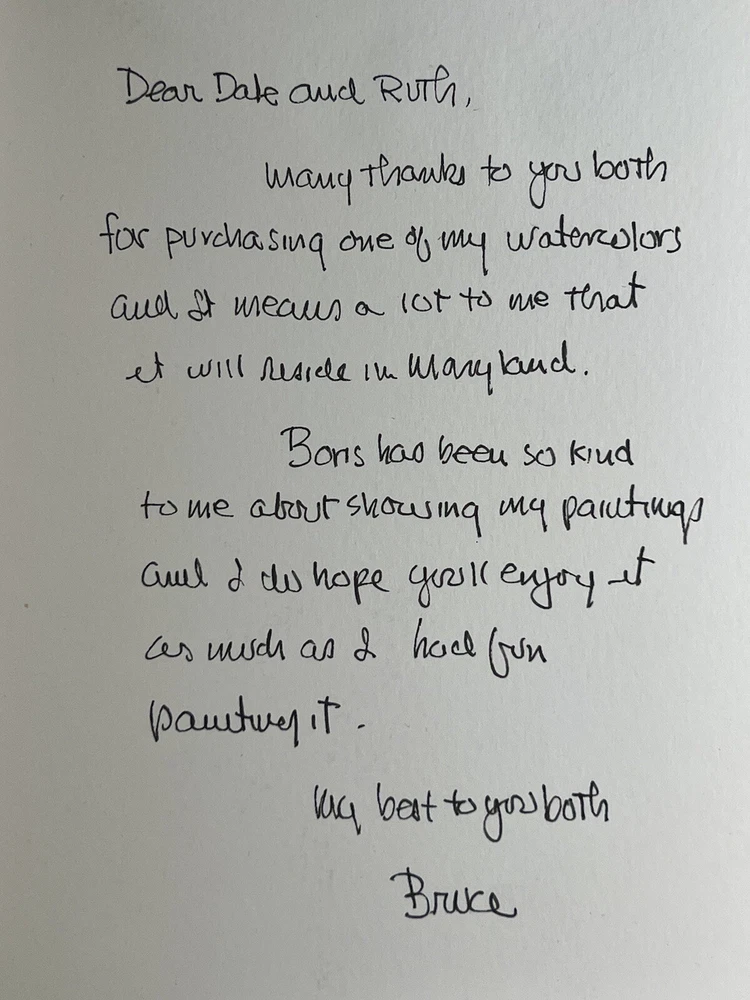 Dear Dale and Ruth,
Many thanks to you both
for purchasing one of my watercolors
and It means a lot to me that
it will reside in Maryland.
Boris has been so kind
to me about showing my paintings
and I do hope you'll enjoy it
as much as I had fun
painting it.
My best to you both
Bruce